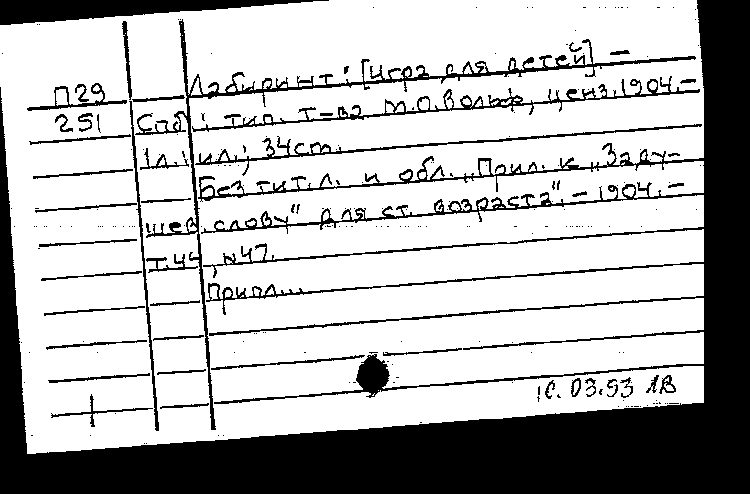 П29 Лабиринт: [Игра для детей]. –
251 Спб.: тип. т-ва М.О.Вольф, ценз.1904.–
1л.: ил.; 34см.
Без тит.л. и обл. „Прил. к „Заду-
шев. слову" для ст. возраста". – 1904. –
т.44, N47.
Прил...
10.03.93 ЛВ